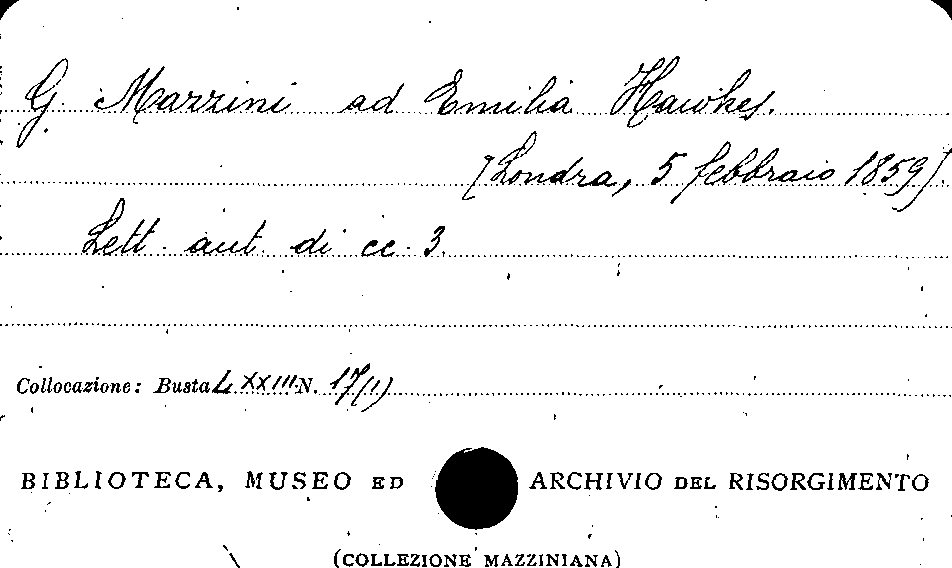 G. Mazzini ad Emilia Hawkes.
[Londra, 5 febbraio 1859].
Lett. aut. di cc. 3.
Collocazione: Busta LXXIII N. 17(1)
BIBLIOTECA, MUSEO ED ARCHIVIO DEL RISORGIMENTO
(COLLEZIONE MAZZINIANA)